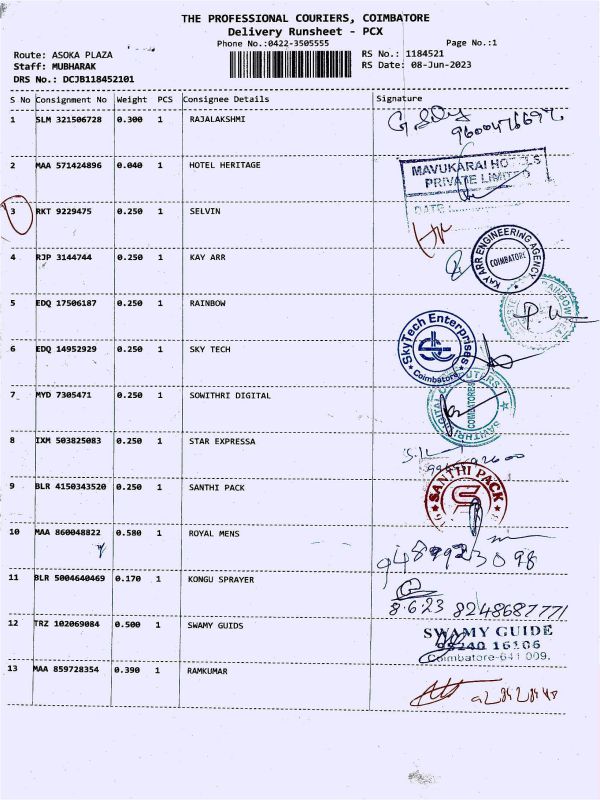 THE PROFESSIONAL COURIERS, COIMBATORE
Delivery Runsheet - PCX
Phone No.:0422-3505555
Page No.:1
Route: ASOKA PLAZA
RS No.: 1184521
Staff: MUBHARAK
RS Date: 08-Jun-2023
DRS No.: DCJB118452101
S No Consignment No Weight PCS Consignee Details Signature
1 SLM 321506728 0.300 1 RAJALAKSHMI
2 MAA 571424896 0.040 1 HOTEL HERITAGE
MAVUKARAI HOTELS
PRIVATE LIMITED
DATE :
3 RKT 9229475 0.250 1 SELVIN
4 RJP 3144744 0.250 1 KAY ARR
KAY ARR ENGINEERING AGENCY
COIMBATORE
5 EDQ 17506187 0.250 1 RAINBOW
6 EDQ 14952929 0.250 1 SKY TECH
SkyTech Enterprises
Coimbatore
7 MYD 7305471 0.250 1 SOWITHRI DIGITAL
8 IXM 503825083 0.250 1 STAR EXPRESSA
9 BLR 4150343520 0.250 1 SANTHI PACK
SANTHI PACK
10 MAA 860048822 0.580 1 ROYAL MENS
9489923098
11 BLR 5004640469 0.170 1 KONGU SPRAYER
8.6.23 8248687771
12 TRZ 102069084 0.500 1 SWAMY GUIDS
SWAMY GUIDE
Coimbatore-641 009.
13 MAA 859728354 0.390 1 RAMKUMAR